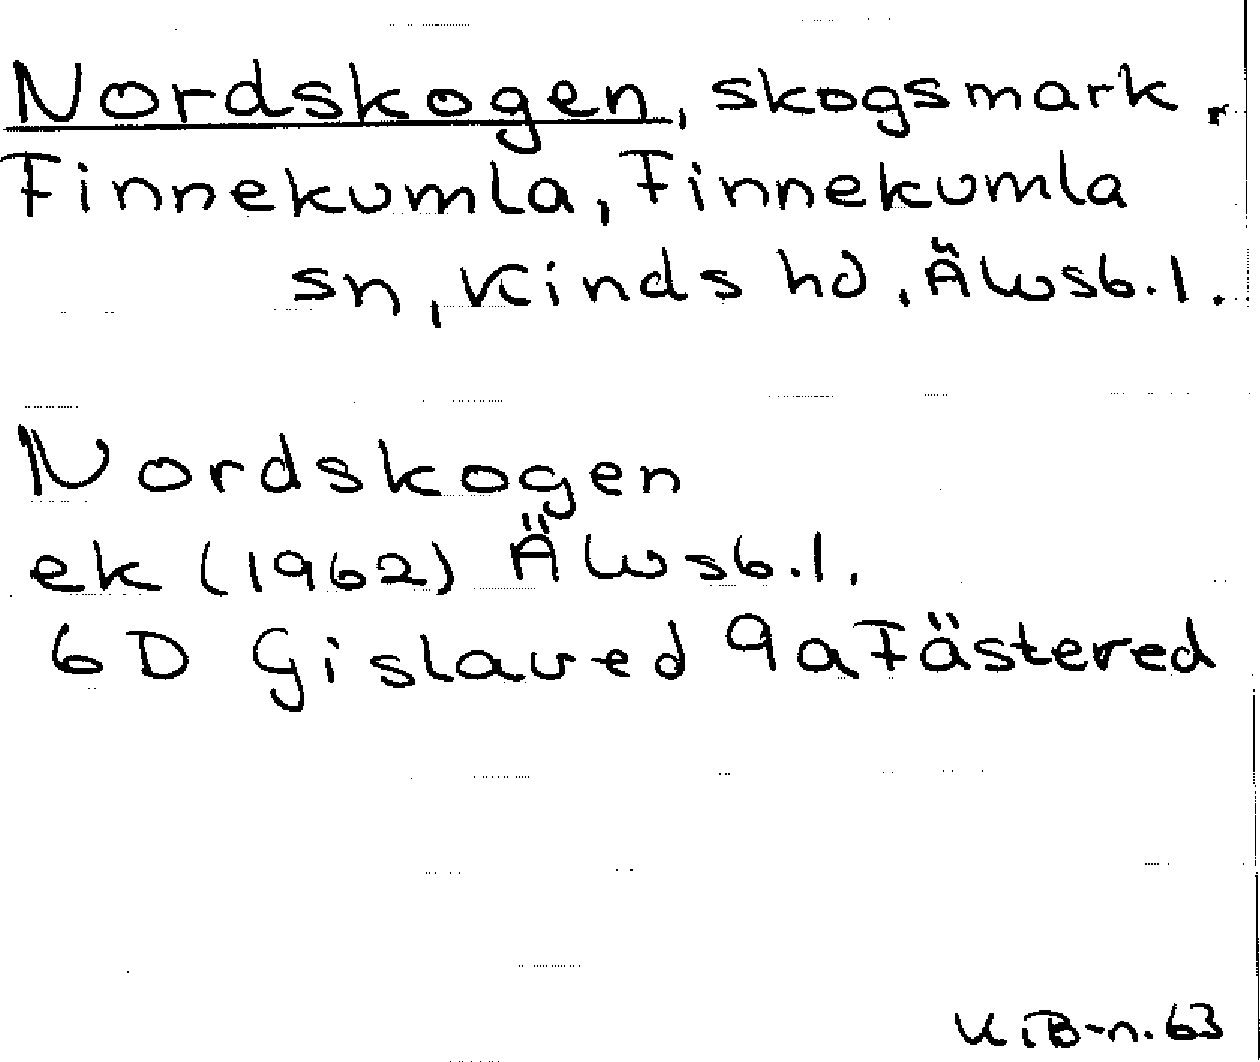 Nordskogen, skogsmark.
Finnekumla, Finnekumla
sn, Kinds hd, Älvsb.l.
Nordskogen
ek (1962) Älvsb.l.
6D Gislaved 9a Fästered
K.B-n. 63